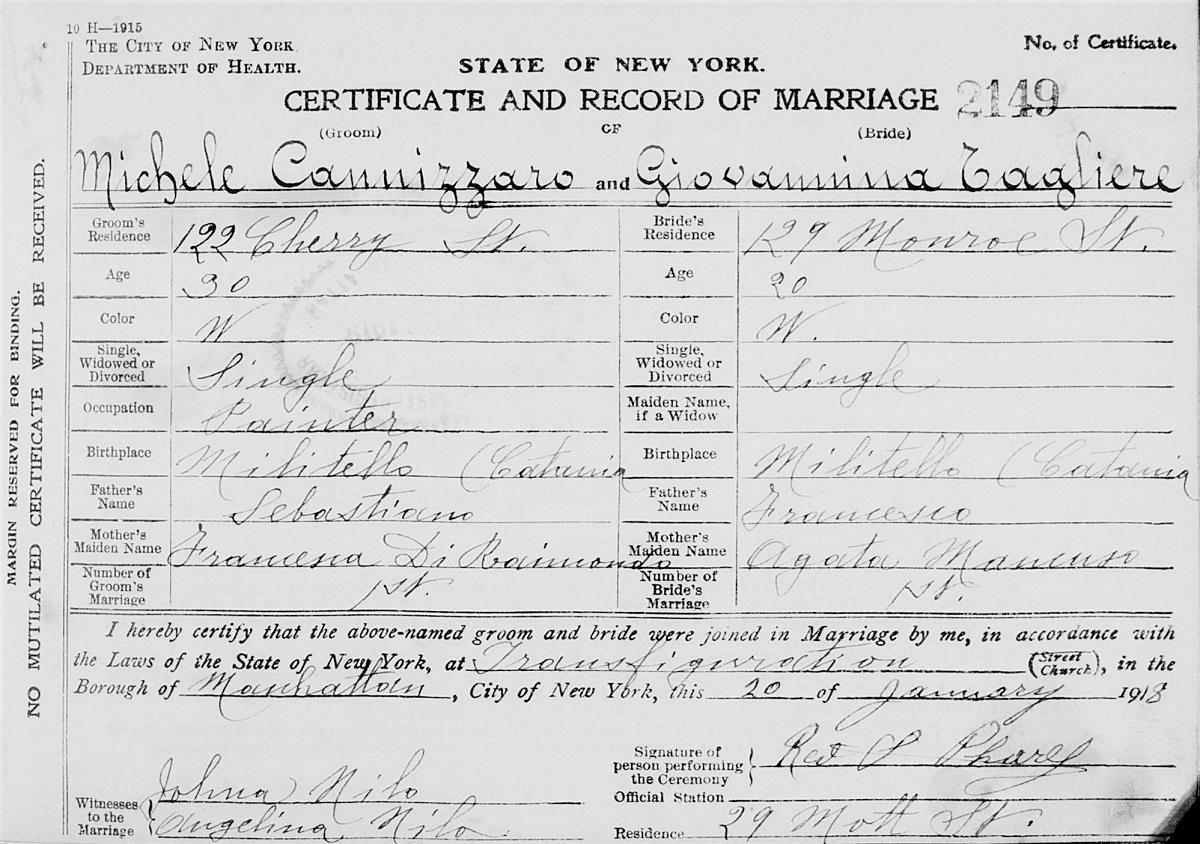 10 H—1915
THE CITY OF NEW YORK
DEPARTMENT OF HEALTH.
No. of Certificate.
STATE OF NEW YORK.
CERTIFICATE AND RECORD OF MARRIAGE 2149
(Groom) OF (Bride)
Michele Cannizzaro and Giovannina Tagliere
Groom's Residence 122 Cherry St. Bride's Residence 129 Monroe St.
Age 30 Age 20
Color W Color W.
Single, Widowed or Divorced Single Single, Widowed or Divorced Single
Occupation Painter Maiden Name, if a Widow
Birthplace Militello (Catania Birthplace Militello (Catania
Father's Name Sebastiano Father's Name Francesco
Mother's Maiden Name Francesca Di Raimondo Mother's Maiden Name Agata Mancuso
Number of Groom's Marriage 1st. Number of Bride's Marriage 1st.
I hereby certify that the above-named groom and bride were joined in Marriage by me, in accordance with
the Laws of the State of New York, at Transfiguration (Street Church), in the
Borough of Manhattan, City of New York, this 20 of January 1918
Signature of person performing the Ceremony Rev
Official Station
Witnesses to the Marriage Johna Nilo
Angelina Nilo
Residence 29 Mott St.
MARGIN RESERVED FOR BINDING.
NO MUTILATED CERTIFICATE WILL BE RECEIVED.